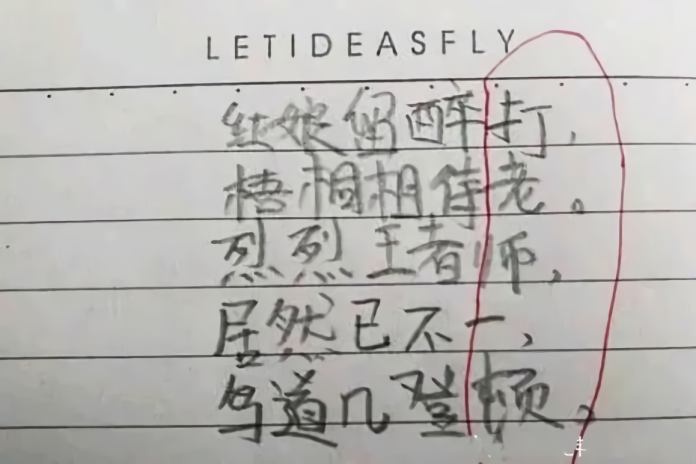 LETIDEASFLY
红娘留醉打,
梧桐相待老。
烈烈王者师,
居然已不一、
鸟道几登顿。